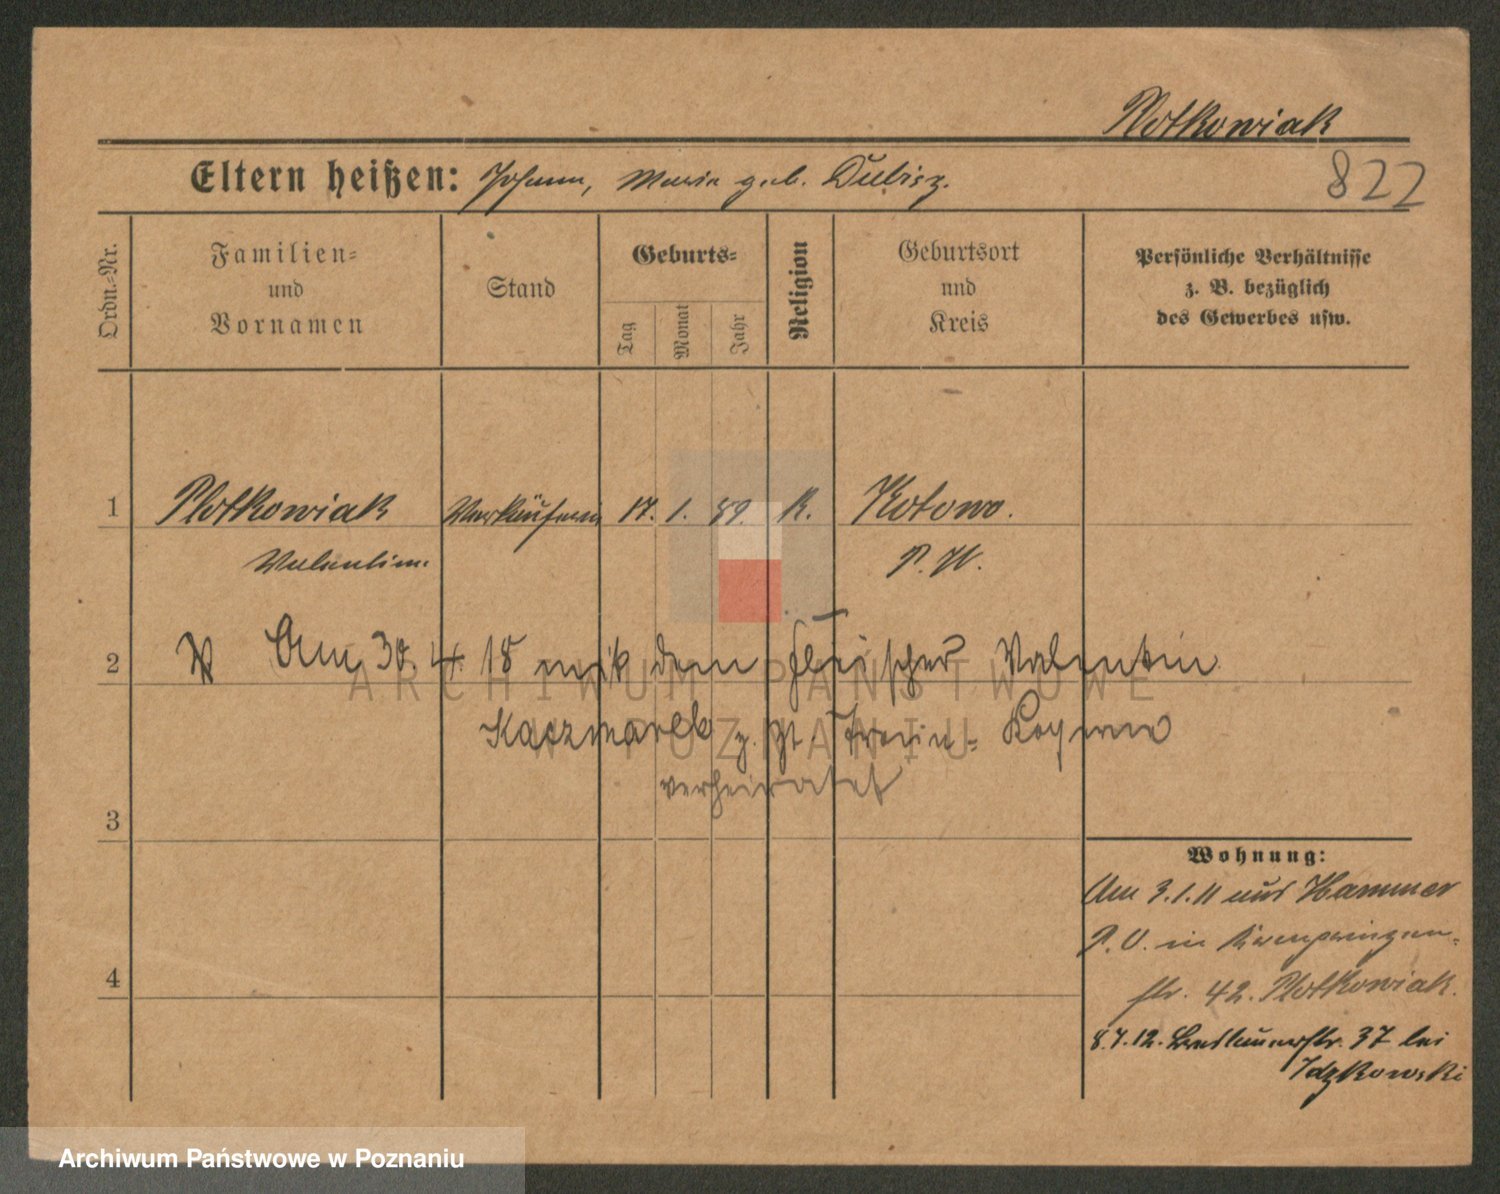 Plotkowiak
Eltern heißen: Johann, Marie geb. Dubisz.
822
Ordn.-Nr.
Familien-
und
Vornamen
Stand
Geburts-
Tag
Monat
Jahr
Religion
Geburtsort
und
Kreis
Persönliche Verhältnisse
z. B. bezüglich
des Gewerbes usw.
1 Plotkowiak Verkäuferin 17. 1. 89. K. Kotowo.
P. W.
2 Am 30. 4. 18 mit dem Fleischer Valentin
Kaczmarek z. Zt
verheiratet
3
4
Wohnung:
Am 3.1.11 aus Hammer
P. O. in Kronprinzen-
str. 42. Plotkowiak.
8.7.12. Breslauerstr. 37 bei
Idzkowski
ARCHIWUM PAŃSTWOWE
W POZNANIU
Archiwum Państwowe w Poznaniu